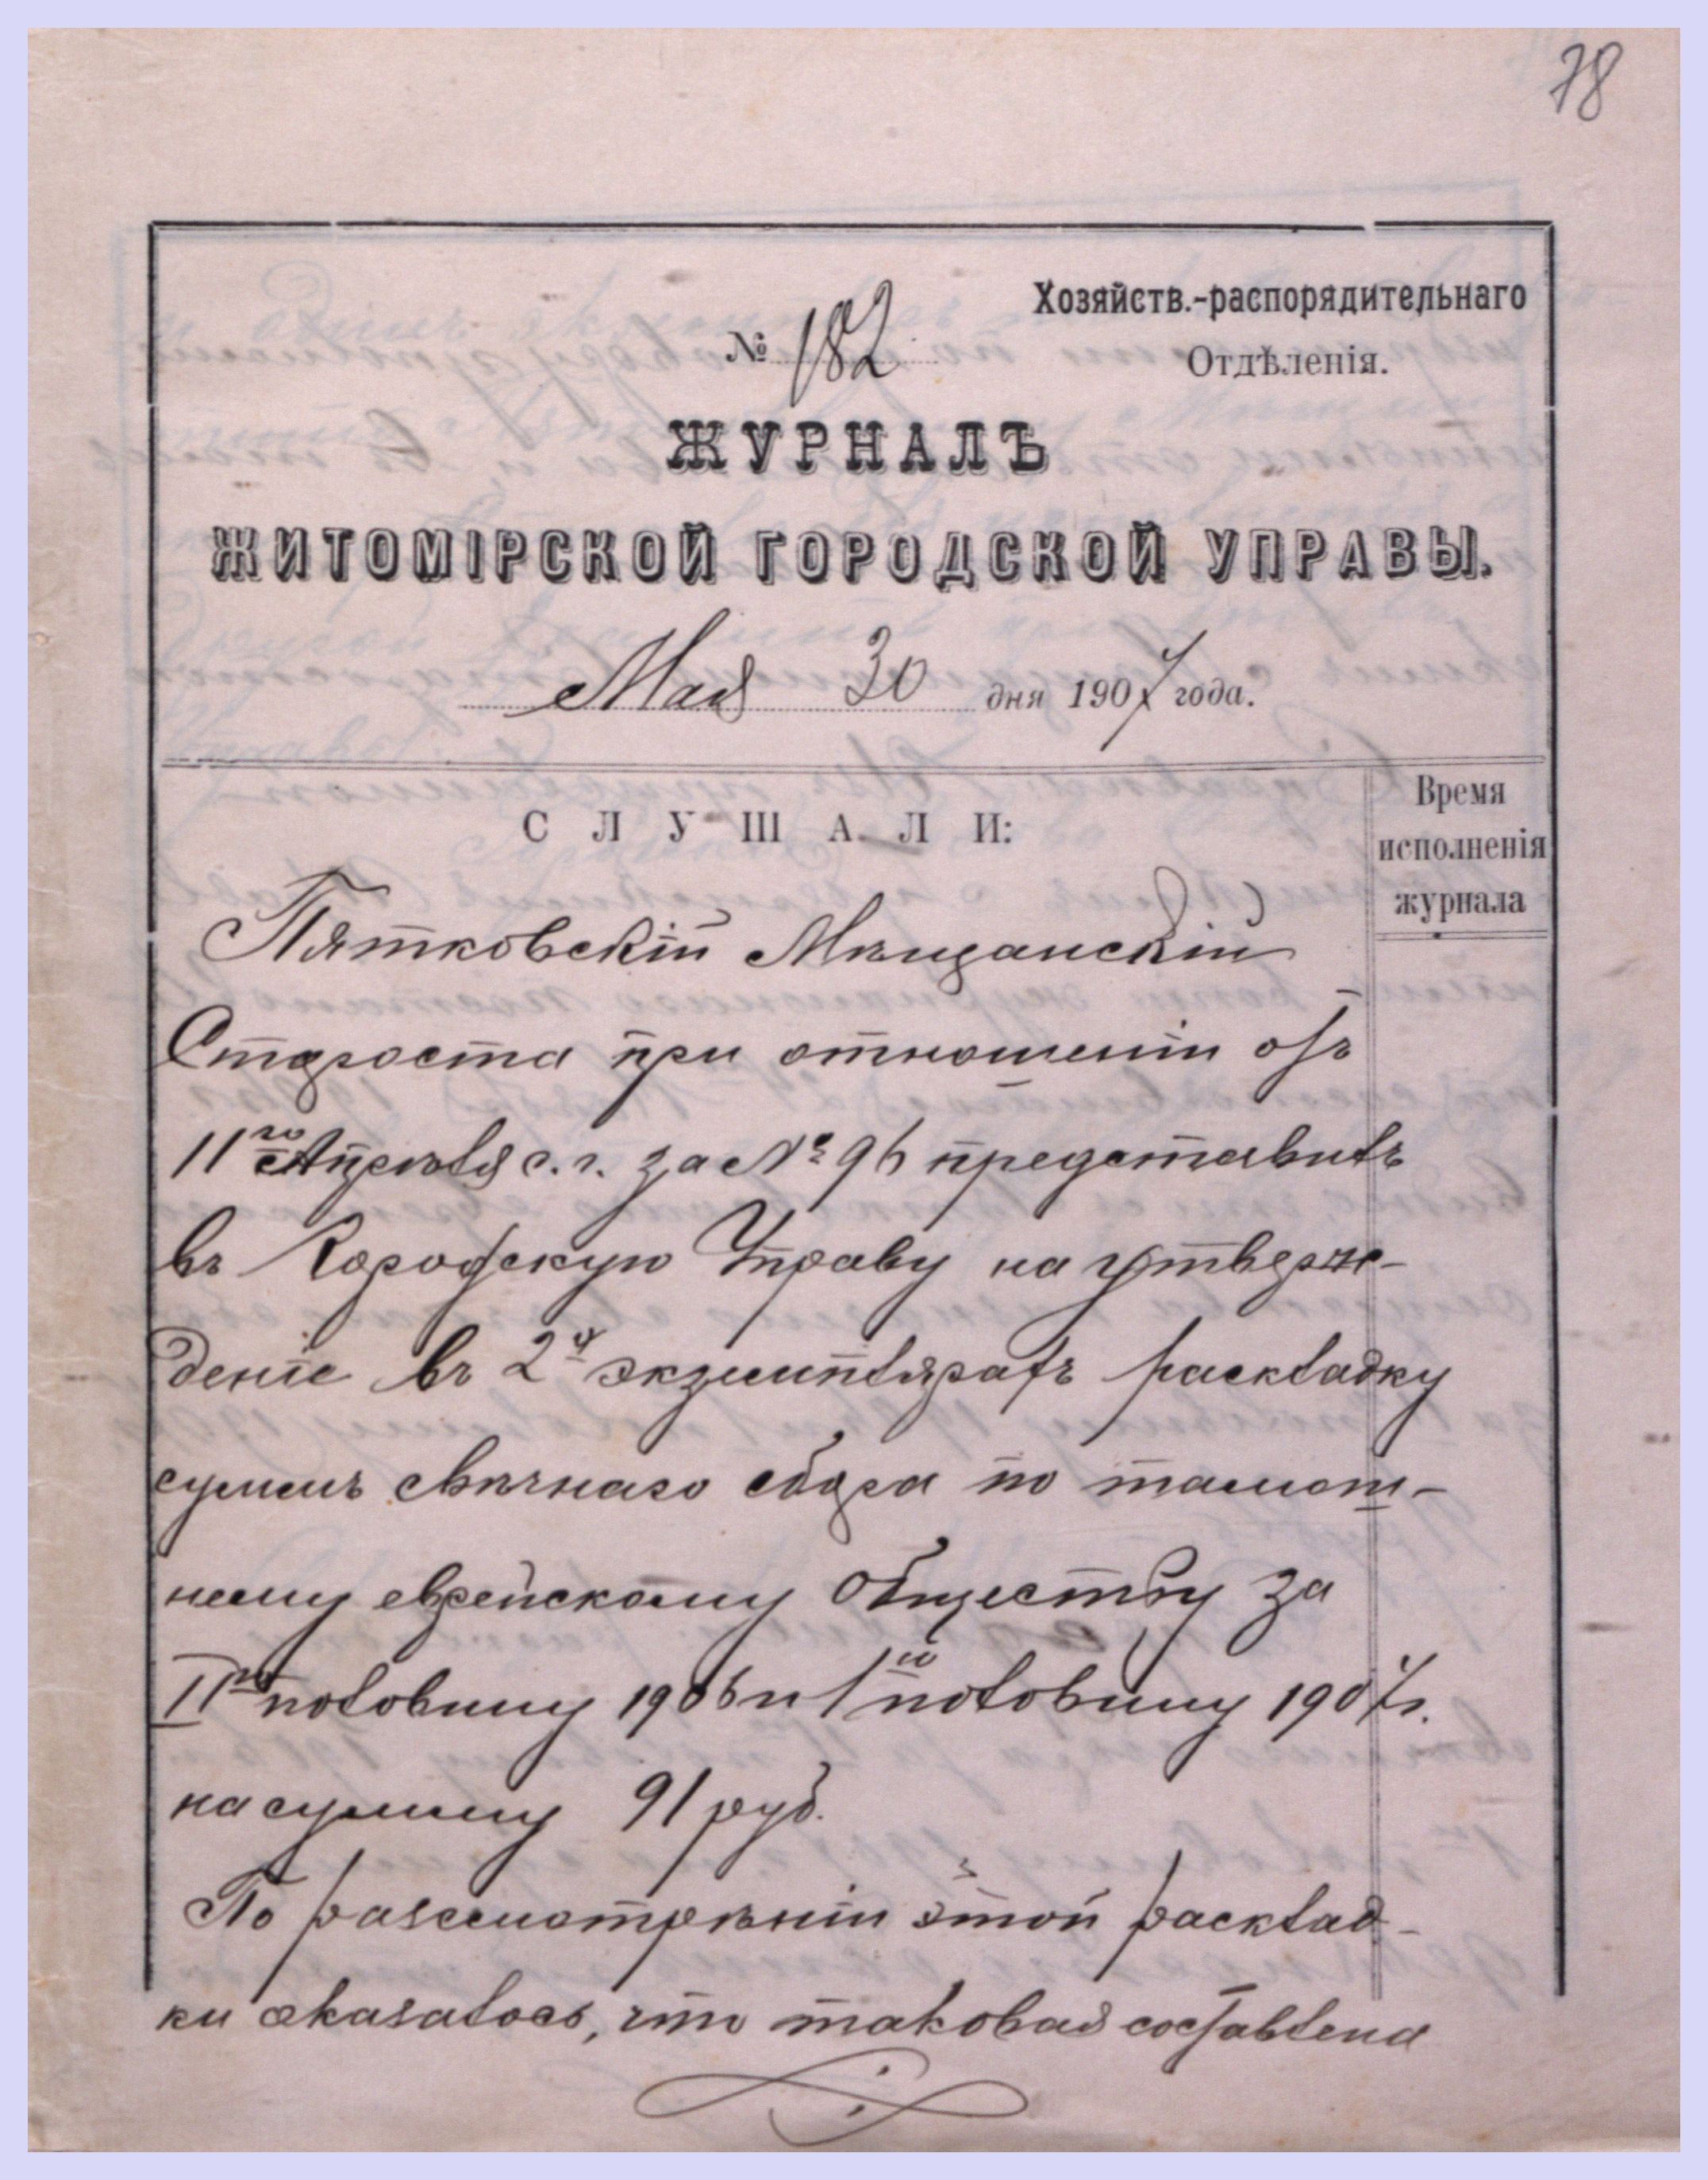 78
Хозяйств.-распорядительнаго
№ 182
Отдѣленія.
ЖУРНАЛЪ
ЖИТОМІРСКОЙ ГОРОДСКОЙ УПРАВЫ.
Мая 30 дня 1907 года.
СЛУШАЛИ:
Время
исполненія
журнала
Пятковскій Мѣщанскій
Староста при отношеніи отъ
11го Апрѣля с. г. за № 96 представилъ
въ Городскую Управу на утверж-
деніе въ 2х экземплярахъ раскладку
суммъ свѣчнаго сбора по тамош-
нему еврейскому обществу за
IIю половину 1906 и 1ю половину 1907 г.
на сумму 91 руб.
По разсмотрѣніи этой расклад-
ки оказалось, что таковая составлена